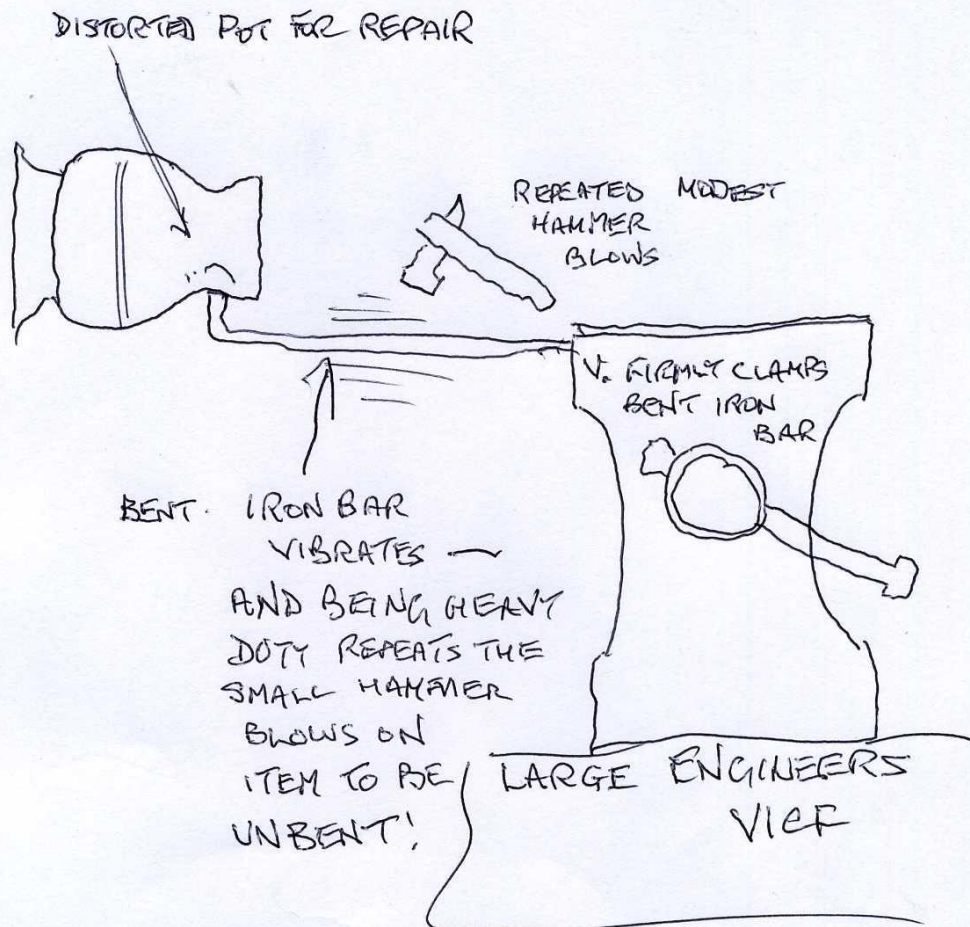 DISTORTED POT FOR REPAIR
REPEATED MODEST
HAMMER
BLOWS
V. FIRMLY CLAMPS
BENT IRON
BAR
BENT. IRON BAR
VIBRATES —
AND BEING HEAVY
DOTY REPEATS THE
SMALL HAMMER
BLOWS ON
ITEM TO BE
UNBENT!
LARGE ENGINEERS
VICE